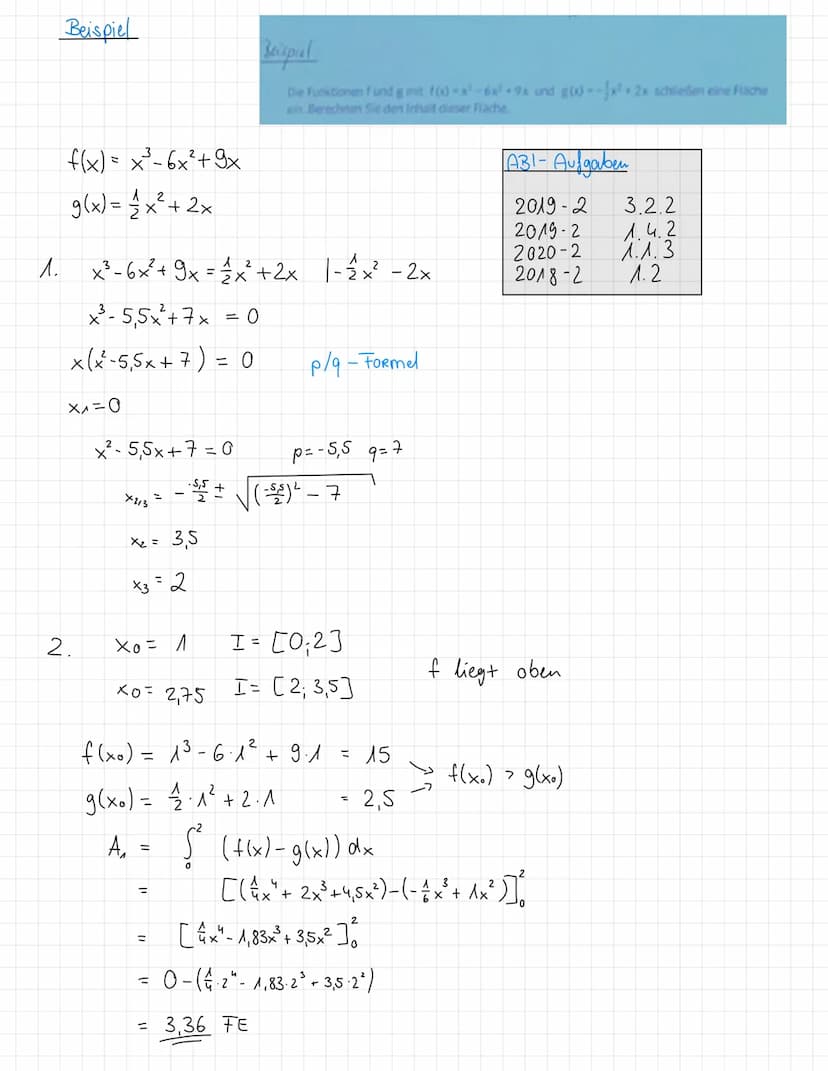 Beispiel
Beispiel
Die Funktionen f und g mit f(x) = x³ - 6x² + 9x und g(x) = -½x² + 2x schließen eine Fläche
ein. Berechnen Sie den Inhalt dieser Fläche.
f(x) = x³ - 6x² + 9x
g(x) = ½x² + 2x
ABI - Aufgaben
2019 - 2 3.2.2
2019 - 2 1.4.2
2020 - 2 1.1.3
2018 - 2 1.2
1. x³ - 6x² + 9x = ½x² + 2x |-½x² - 2x
x³ - 5,5x² + 7x = 0
x(x² - 5,5x + 7) = 0 p/q - Formel
x₁ = 0
x² - 5,5x + 7 = 0 p = -5,5 q = 7
x₂/₃ = - -5,5/2 ± √((-5,5/2)² - 7)
x₂ = 3,5
x₃ = 2
2. x₀ = 1 I = [0;2]
f liegt oben
x₀ = 2,75 I = [2; 3,5]
f(x₀) = 1³ - 6·1² + 9·1 = 15
g(x₀) = ½·1² + 2·1 = 2,5
f(x₀) > g(x₀)
A₁ = ∫₀² (f(x) - g(x)) dx
= [(¼x⁴ + 2x³ + 4,5x²) - (-⅙x³ + 1x²)]₀²
= [¼x⁴ - 1,83x³ + 3,5x²]₀²
= 0 - (¼·2⁴ - 1,83·2³ + 3,5·2²)
= 3,36 FE